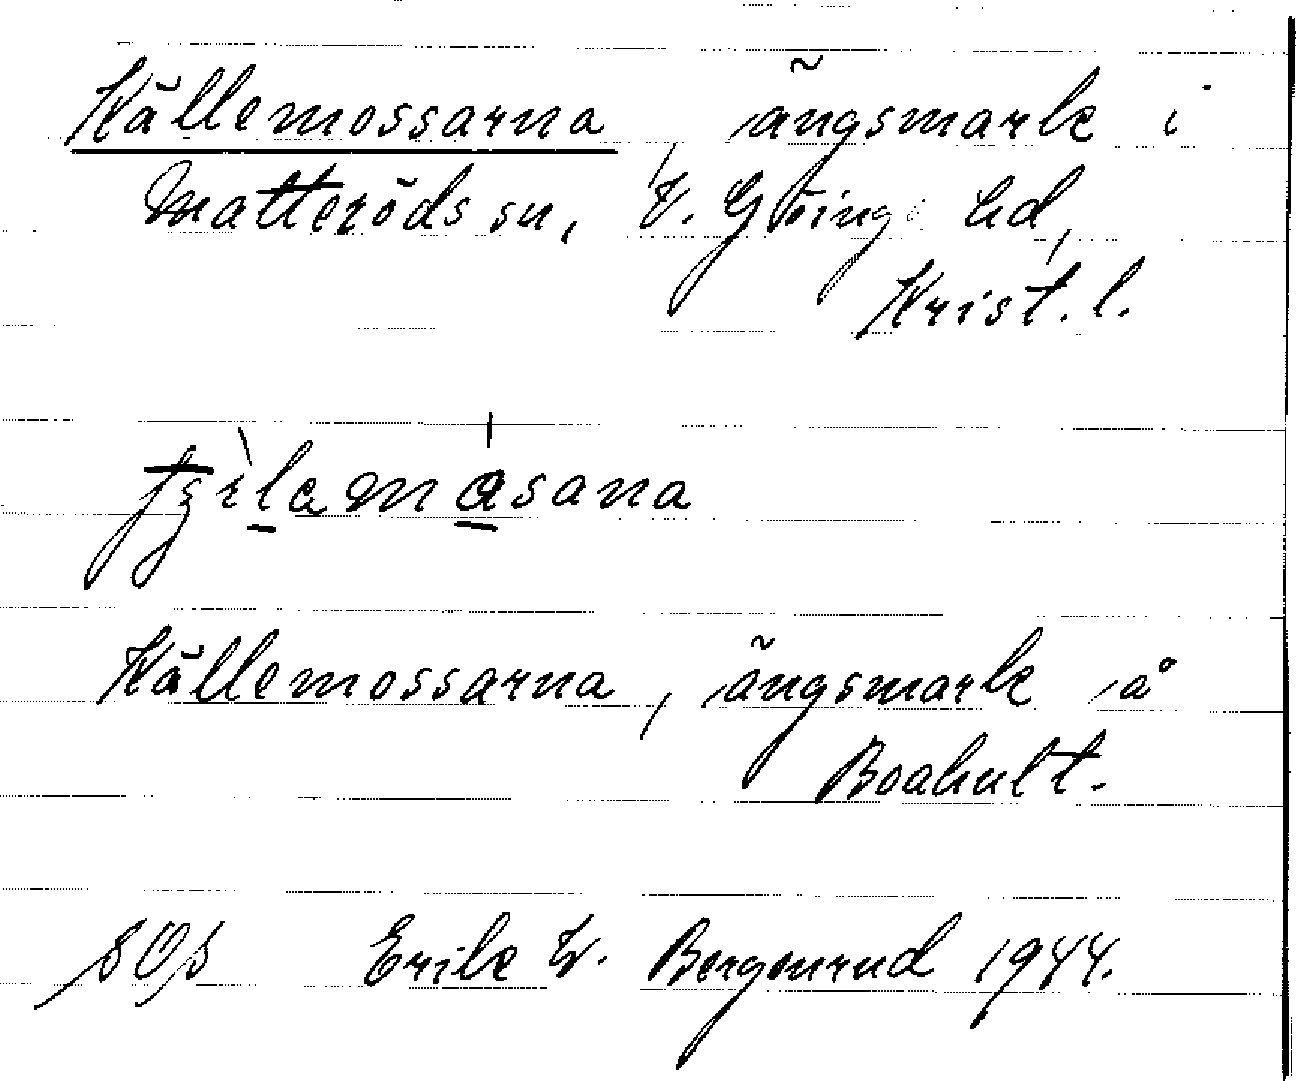 Källemossarna, ängsmark i
Matteröds sn, V. Göinge hd,
Krist. l.
Källemossarna, ängsmark å
Boahult.
Erik W. Bergenrud 1944.